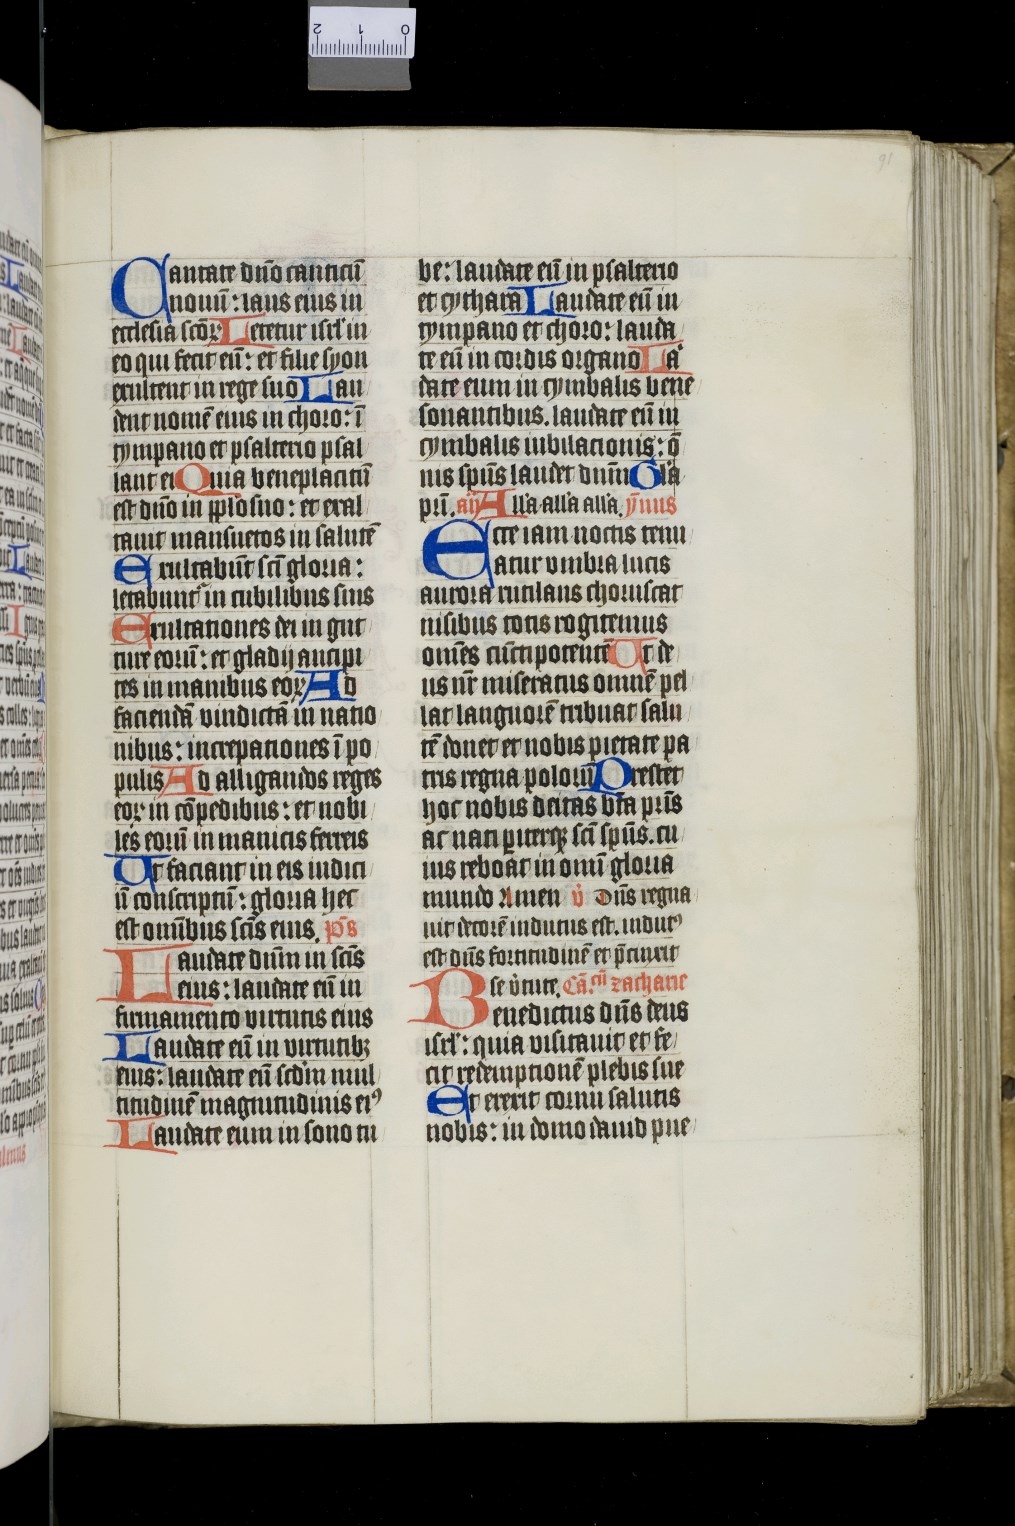 91
Cantate dn̄o canticū
nouū : laus eius in
ecclesia scōꝝ Letetur isrl' in
eo qui fecit eū : et filie syon
exultent in rege suo Lau
dent nomē eius in choro : ī
tympano et psalterio psal
lant ei Quia beneplacitū
est dn̄o in pplo suo : et exal
tauit mansuetos in salutē
Exultabūt sc̄i gloria :
letabunt᷑ in cubilibus suis
Exultationes dei in gut
ture eorū : et gladij ancipi
tes in manibus eoꝝ Ad
faciendā vindictā in natio
nibus : increpationes ī po
pulis Ad alligandos reges
eoꝝ in cōpedibus : et nobi
les eorū in manicis ferreis
Ut faciant in eis iudici
ū conscriptū : gloria hec
est omībus scīs eius. ps̄
Laudate dn̄m in scīs
eius : laudate eū in
firmamento virtutis eius
Laudate eū in virtutibꝫ
eius : laudate eū scdm̄ mul
titudinē magnitudinis eiꝰ
Laudate eum in sono tu
be : laudate eū in psalterio
et cythara Laudate eū in
tympano et choro : lauda
te eū in cordis organo La
date eum in cymbalis bene
sonantibus. laudate eū in
cymbalis iubilacionis : ō
nis spūs laudet dn̄m Gl'a
pr̄i. añ All'a all'a all'a ȳnus
Ecce iam noctis tenu
atur vmbra lucis
aurora rutilans choruscat
nisibus totis rogitemus
om̄es cūctipotentē Ut de
us nr̄ miseratus omnē pel
lat languorē tribuat salu
tē donet et nobis pietate pa
tris regna polorū Prestet
hoc nobis deitas bt̄a pr̄is
ac nati pariterqꝫ sc̄i spūs. cu
ius reboat in omni gloria
mundo Amen v̊ Dn̄s regna
uit decorē indutus est. indutꝰ
est dn̄s fortitudinē et p̄cinxit
se v̊tute. Cā.cū zacharie
Benedictus dn̄s deus
isrl' : quia visitauit et fe
cit redemptionē plebis sue
Et erexit cornu salutis
nobis : in domo dauid pue